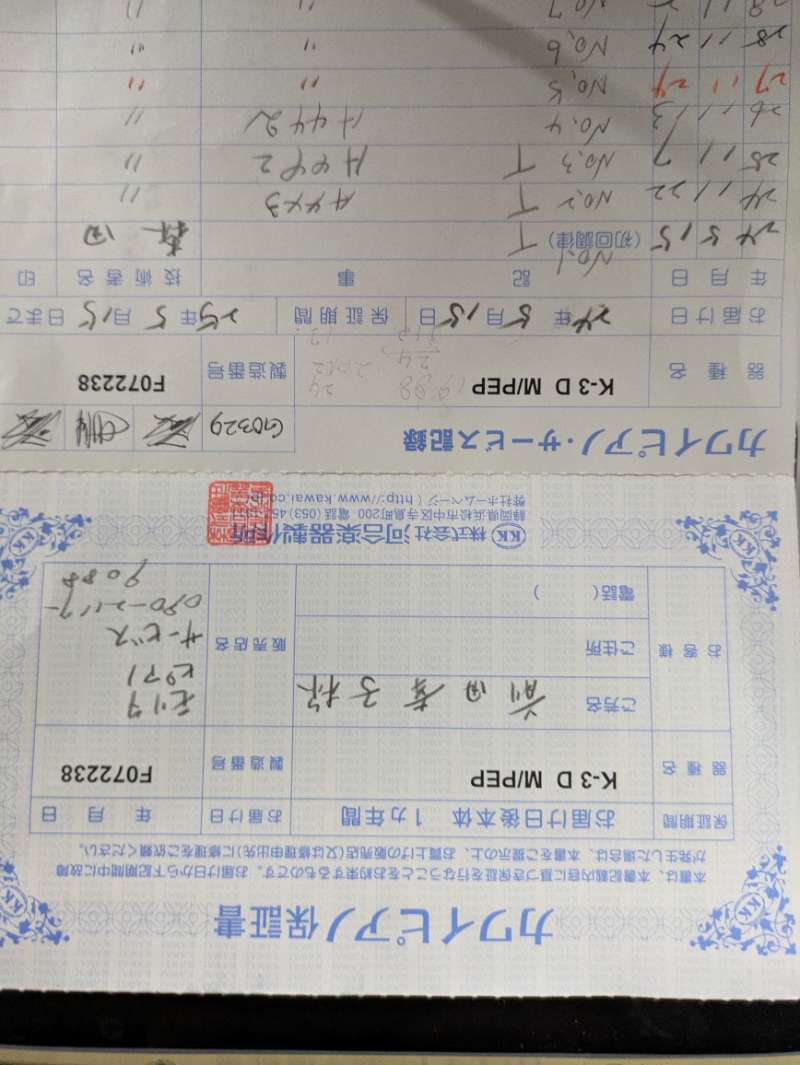 カワイピアノ保証書
本書は、本書記載内容に基づき保証を行なうことをお約束するものです。お届け日から下記期間中に故障
が発生した場合は、本書をご提示の上、お買上げの販売店(又は修理申出先)に修理をご依頼ください。
保証期間 お届け日後本体 1カ年間 お届け日 年 月 日
器種名 K-3 D M/PEP 製造番号 F072238
お客様 ご芳名 前田 子様 販売店名 ピアノ
ご住所 サービス
電話( )
KK 株式会社河合楽器製作所
静岡県浜松市中区寺島町200 電話 (053)
弊社ホームページ ( http://www.kawai.co.jp
カワイピアノ・サービス記録 G0329
器種名 K-3 D M/PEP 製造番号 F072238
お届け日 24年 5月15日 保証期間 25年 5月15日まで
年 月 日 記事 技術者名 印
24 5 15 No,1 (初回調律) T 森田
24 11 22 No,2 T A443 〃
25 11 7 No,3 T A442 〃
26 11 13 No,4 A442 〃
27 11 24 No,5 〃 〃
28 11 24 No,6 〃 〃
No7 〃